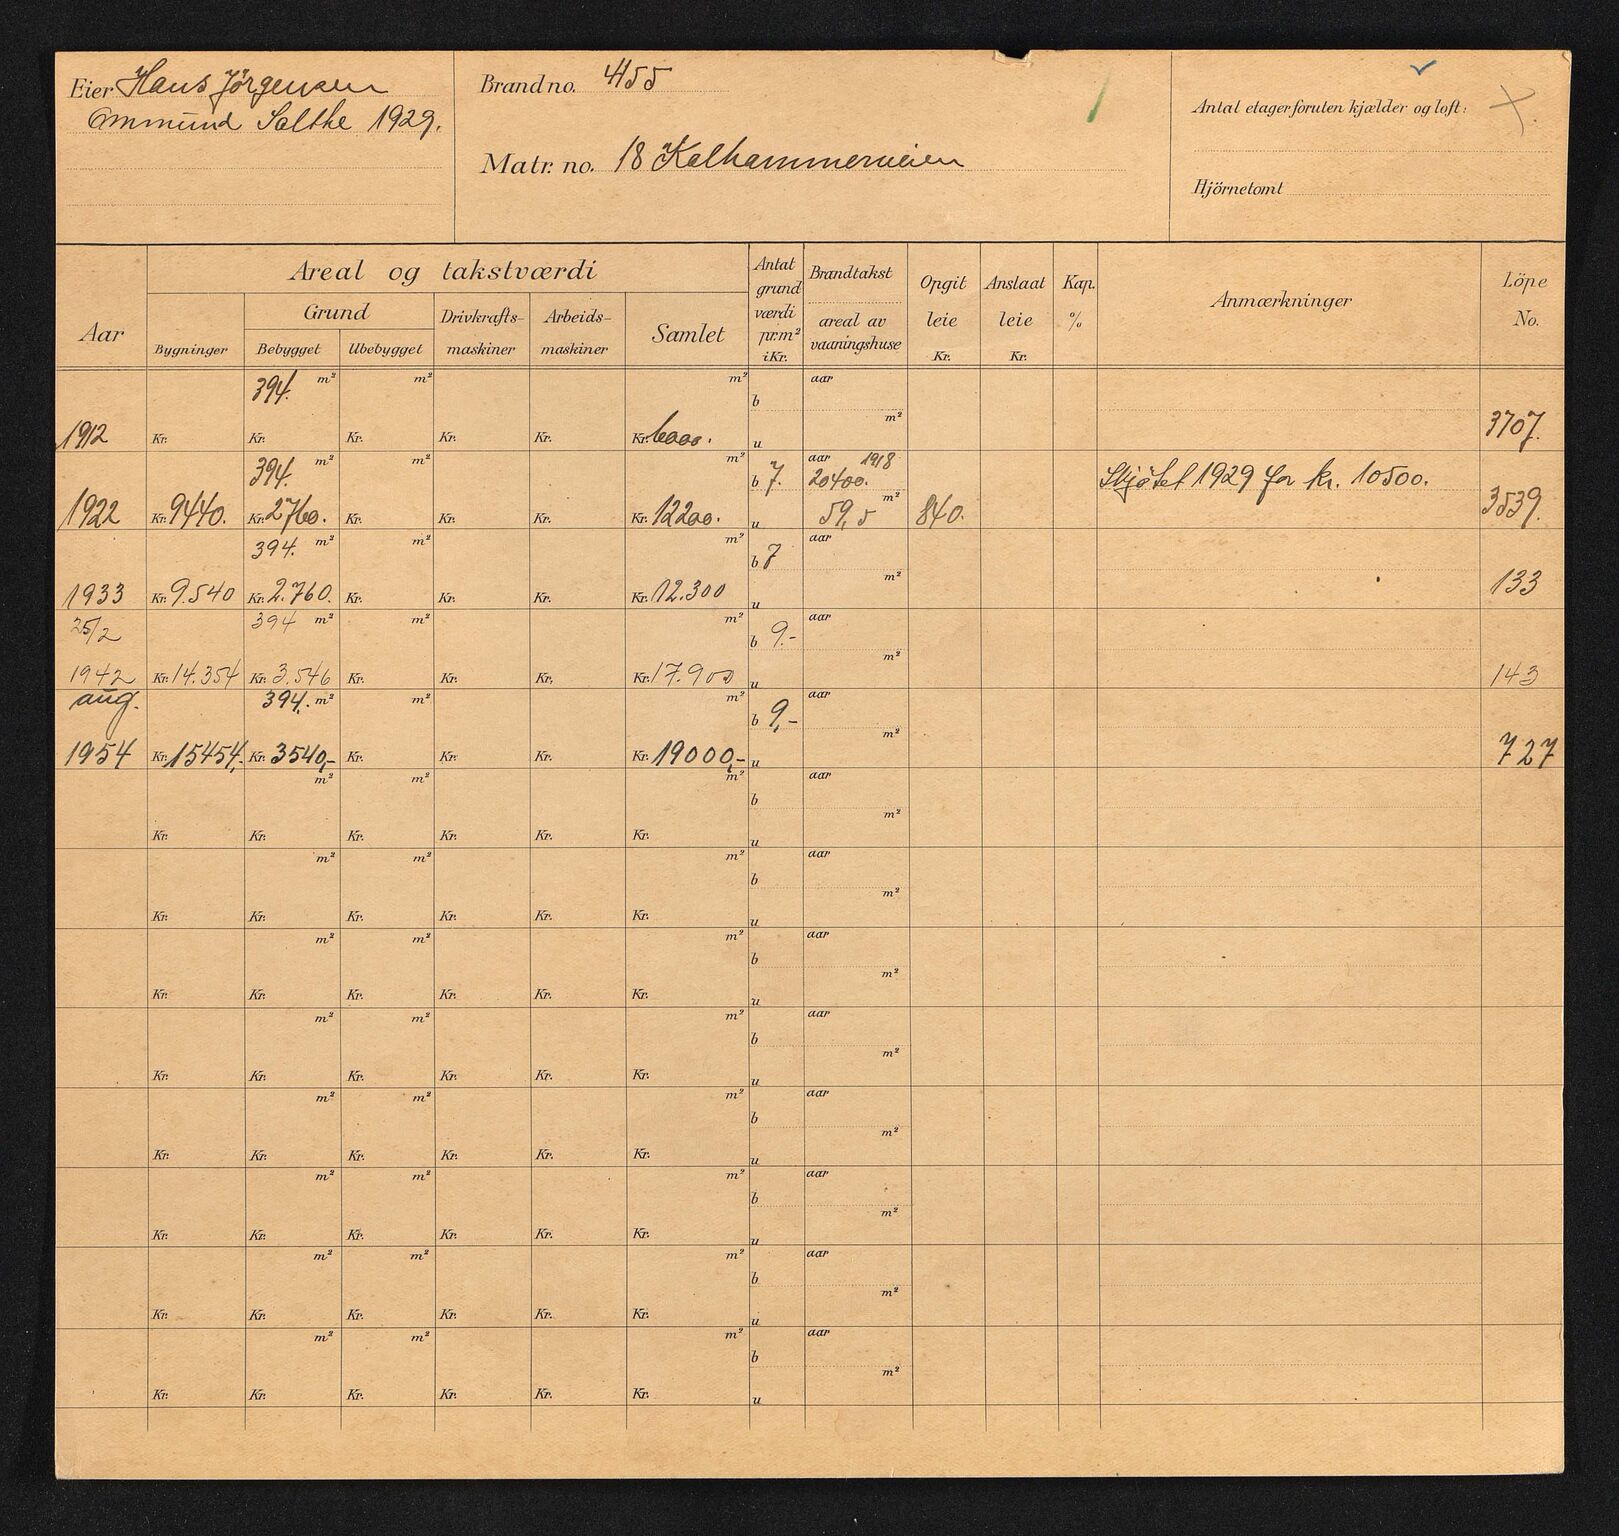 Eier Hans Jörgensen
Ommund Salthe 1929.
Brand no. 4155
Matr. no. 18 Kalhammerveien
Antal etager foruten kjælder og loft:
Hjörnetomt
Aar
Areal og takstværdi
Bygninger
Grund
Bebygget Ubebygget
Drivkrafts-
maskiner
Arbeids-
maskiner
Samlet
Antat
grund
værdi
pr.m²
i Kr.
Brandtakst
areal av
vaaningshuse
Opgit
leie
Kr.
Anslaat
leie
Kr.
Kap.
%
Anmærkninger
Löpe
No.
394. m² m² m² b aar m²
1912 Kr. Kr. Kr. Kr. Kr. Kr. 6000. u 3707.
394. m² m² m² b 7. aar 1918 20400. m² Skjötet 1929 for kr. 10500.
1922 Kr. 9440. Kr. 2760. Kr. Kr. Kr. Kr. 12200. u 59,5 840. 3539.
394. m² m² m² b 7 aar m²
1933 Kr. 9.540 Kr. 2.760. Kr. Kr. Kr. Kr. 12.300 u 133
25/2 394 m² m² m² b 9.- aar m²
1942 Kr. 14.354 Kr. 3.546 Kr. Kr. Kr. Kr. 17.900 u 143
aug. 394. m² m² m² b 9,- aar m²
1954 Kr. 15454,- Kr. 3540,- Kr. Kr. Kr. Kr. 19000,- u 727
m² m² m² b aar m²
Kr. Kr. Kr. Kr. Kr. Kr. u
m² m² m² b aar m²
Kr. Kr. Kr. Kr. Kr. Kr. u
m² m² m² b aar m²
Kr. Kr. Kr. Kr. Kr. Kr. u
m² m² m² b aar m²
Kr. Kr. Kr. Kr. Kr. Kr. u
m² m² m² b aar m²
Kr. Kr. Kr. Kr. Kr. Kr. u
m² m² m² b aar m²
Kr. Kr. Kr. Kr. Kr. Kr. u
m² m² m² b aar m²
Kr. Kr. Kr. Kr. Kr. Kr. u
m² m² m² b aar m²
Kr. Kr. Kr. Kr. Kr. Kr. u